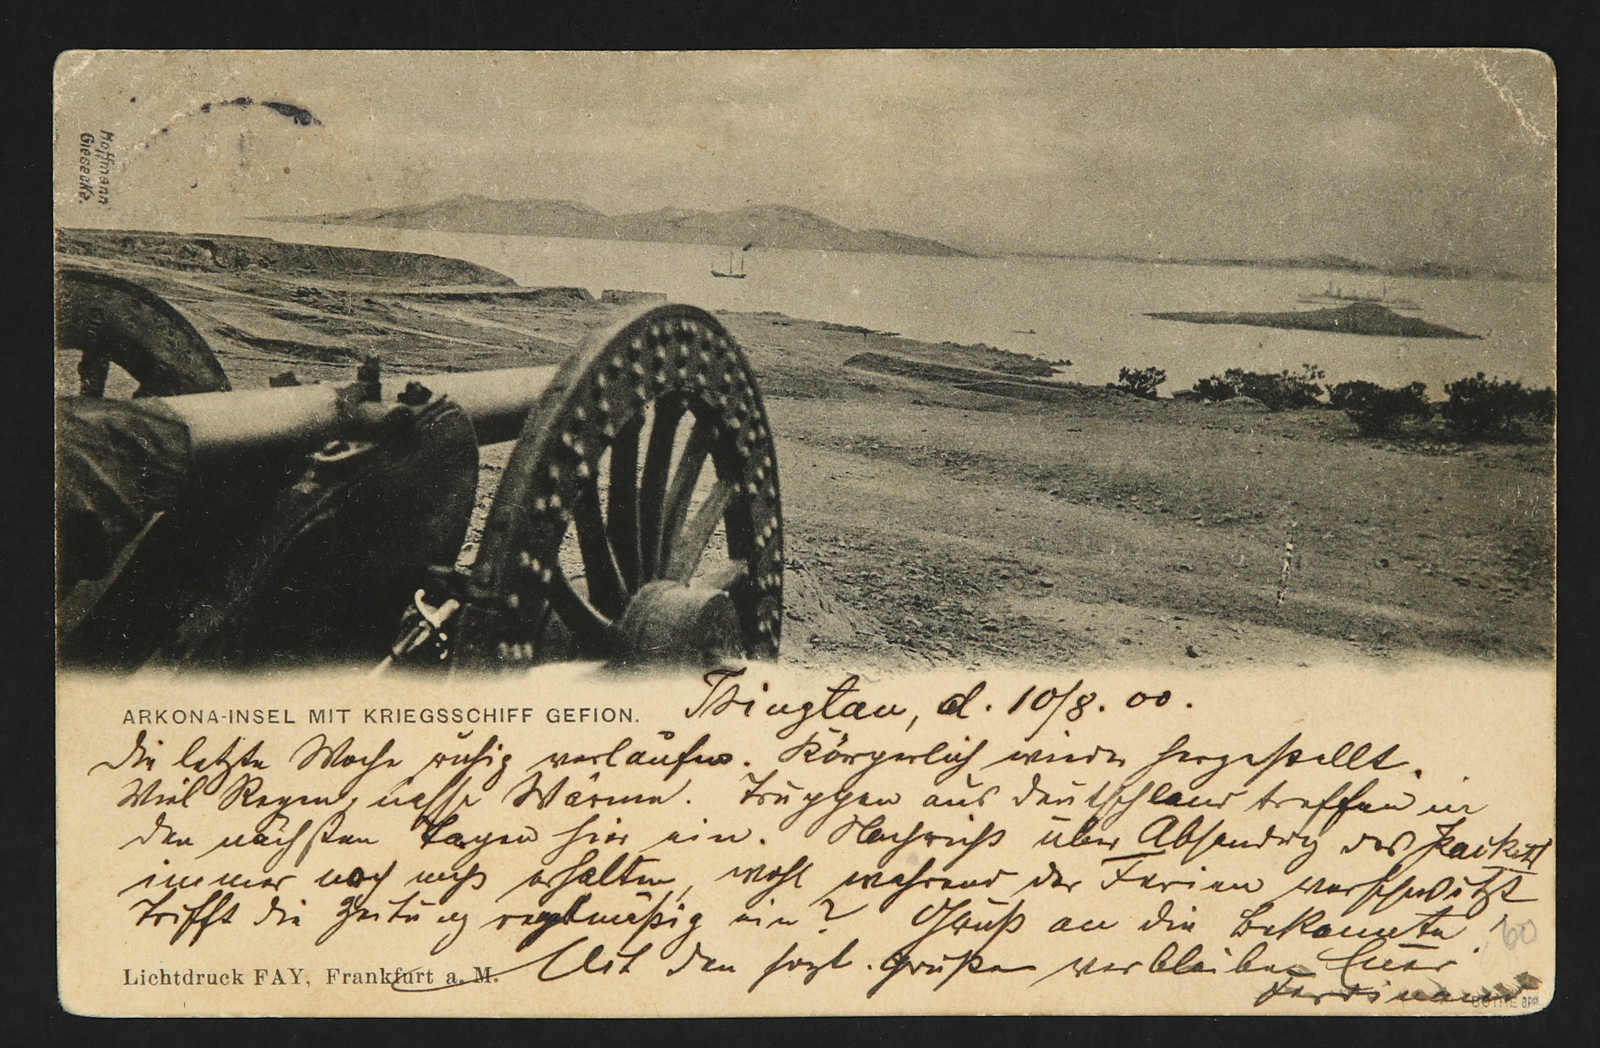 Hoffmann
Giesecke.
ARKONA-INSEL MIT KRIEGSSCHIFF GEFION.
Tsingtau, d. 10/8. 00.
Die letzte Woche ruhig verlaufen. Körperlich wieder hergestellt.
Viel Regen, nasse Wärme. Truppen aus Deutschland treffen in
den nächsten Tagen hier ein. Nachricht über Absendung des Packets
immer noch nicht erhalten, wohl während der Ferien verschwitzt
Trifft die Zeitung regelmäßig ein? Gruß an die Bekannte!
Mit den hzl. Grüßen verbleibe Euer
Ferdinand
Lichtdruck FAY, Frankfurt a. M.
60